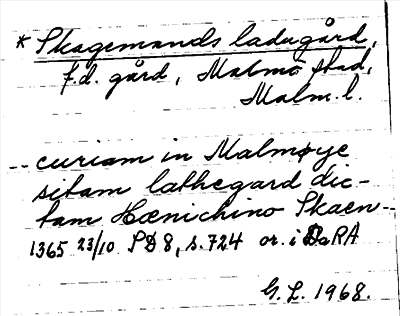 * Skagemands ladugård,
f.d. gård, Malmö stad,
Malm. l.
-- curiam in Malmøye
sitam lathegard dic-
tam Hænichino Skaen--
1365 23/10 SD 8, s. 724 or. i DaRA
G. L. 1968.